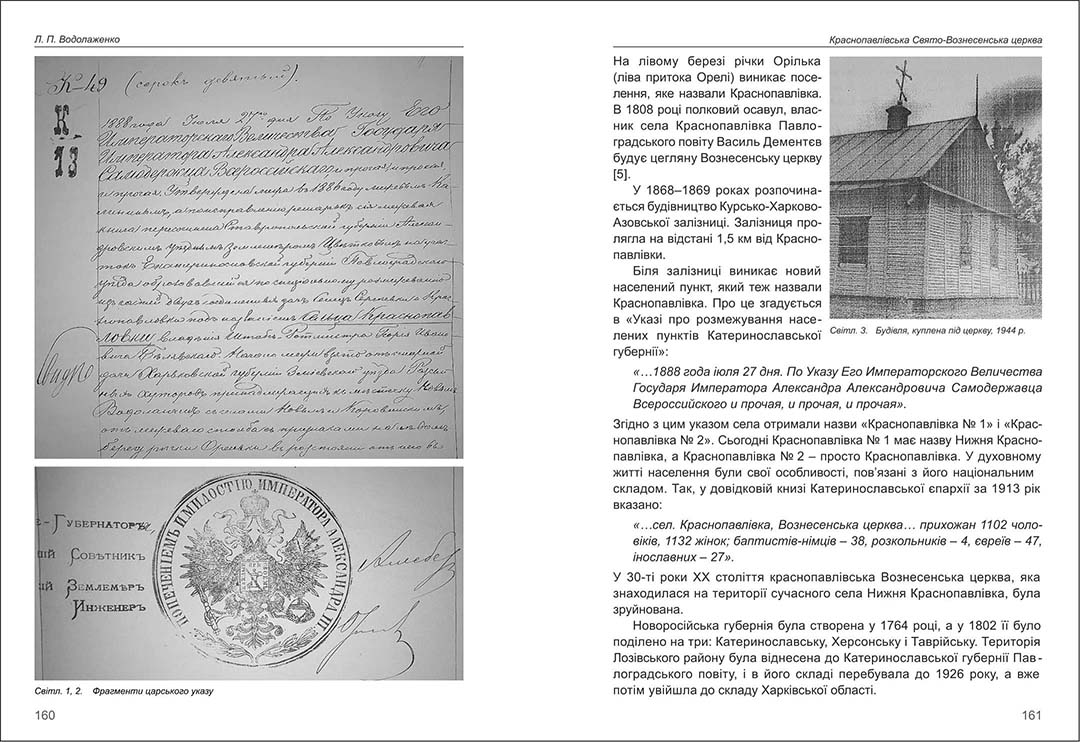 Л. П. Водолаженко
К–49 (сорокъ девятый).
К
13
1888 года Июля 27 дня По Указу Его
Императорскаго Величества Государя
Императора Александра Александровича
Самодержца Всероссійскаго и прочая, и прочая
и прочая, Утверждена
въ 1886 году
книга
Ставропольской губерніи Алексан-
дровскимъ уѣзднымъ Землемѣромъ
Екатеринославской губерніи Павлоградскаго
уѣзда
Сельца Краснопав
ловки владѣнія Штабъ Ротмистра
дачъ Харьковской губерніи Зміевскаго уѣзда
хуторовъ
берегу рѣчки
е-Губернаторъ
шій Совѣтникъ
ій Землемѣръ
Инженеръ
ПОПЕЧЕНІЕМЪ И МИЛОСТІЮ ИМПЕРАТОРА АЛЕКСАНДРА III
Світл. 1, 2. Фрагменти царського указу
160
Краснопавлівська Свято-Вознесенська церква
На лівому березі річки Орілька
(ліва притока Орелі) виникає посе-
лення, яке назвали Краснопавлівка.
В 1808 році полковий осавул, влас-
ник села Краснопавлівка Павло-
градського повіту Василь Дементєв
будує цегляну Вознесенську церкву
[5].
У 1868–1869 роках розпочина-
ється будівництво Курсько-Харково-
Азовської залізниці. Залізниця про-
лягла на відстані 1,5 км від Красно-
павлівки.
Біля залізниці виникає новий
населений пункт, який теж назвали
Краснопавлівка. Про це згадується
в «Указі про розмежування насе-
лених пунктів Катеринославської
губернії»:
Світл. 3. Будівля, куплена під церкву, 1944 р.
«…1888 года июля 27 дня. По Указу Его Императорского Величества
Государя Императора Александра Александровича Самодержавца
Всероссийского и прочая, и прочая, и прочая».
Згідно з цим указом села отримали назви «Краснопавлівка № 1» і «Крас-
нопавлівка № 2». Сьогодні Краснопавлівка № 1 має назву Нижня Красно-
павлівка, а Краснопавлівка № 2 – просто Краснопавлівка. У духовному
житті населення були свої особливості, пов'язані з його національним
складом. Так, у довідковій книзі Катеринославської єпархії за 1913 рік
вказано:
«…сел. Краснопавлівка, Вознесенська церква… прихожан 1102 чоло-
віків, 1132 жінок; баптистів-німців – 38, розкольників – 4, євреїв – 47,
інославних – 27».
У 30-ті роки ХХ століття краснопавлівська Вознесенська церква, яка
знаходилася на території сучасного села Нижня Краснопавлівка, була
зруйнована.
Новоросійська губернія була створена у 1764 році, а у 1802 її було
поділено на три: Катеринославську, Херсонську і Таврійську. Територія
Лозівського району була віднесена до Катеринославської губернії Пав-
логрaдського повіту, і в його складі перебувала до 1926 року, а вже
потім увійшла до складу Харківської області.
161